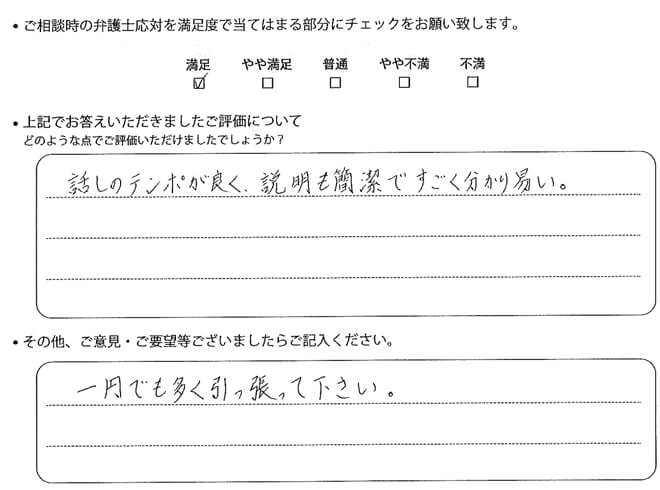 • ご相談時の弁護士応対を満足度で当てはまる部分にチェックをお願い致します。
満足 やや満足 普通 やや不満 不満
☑ □ □ □ □
• 上記でお答えいただきましたご評価について
どのような点でご評価いただけましたでしょうか？
話しのテンポが良く、説明も簡潔ですごく分かり易い。
• その他、ご意見・ご要望等ございましたらご記入ください。
一円でも多く引っ張って下さい。